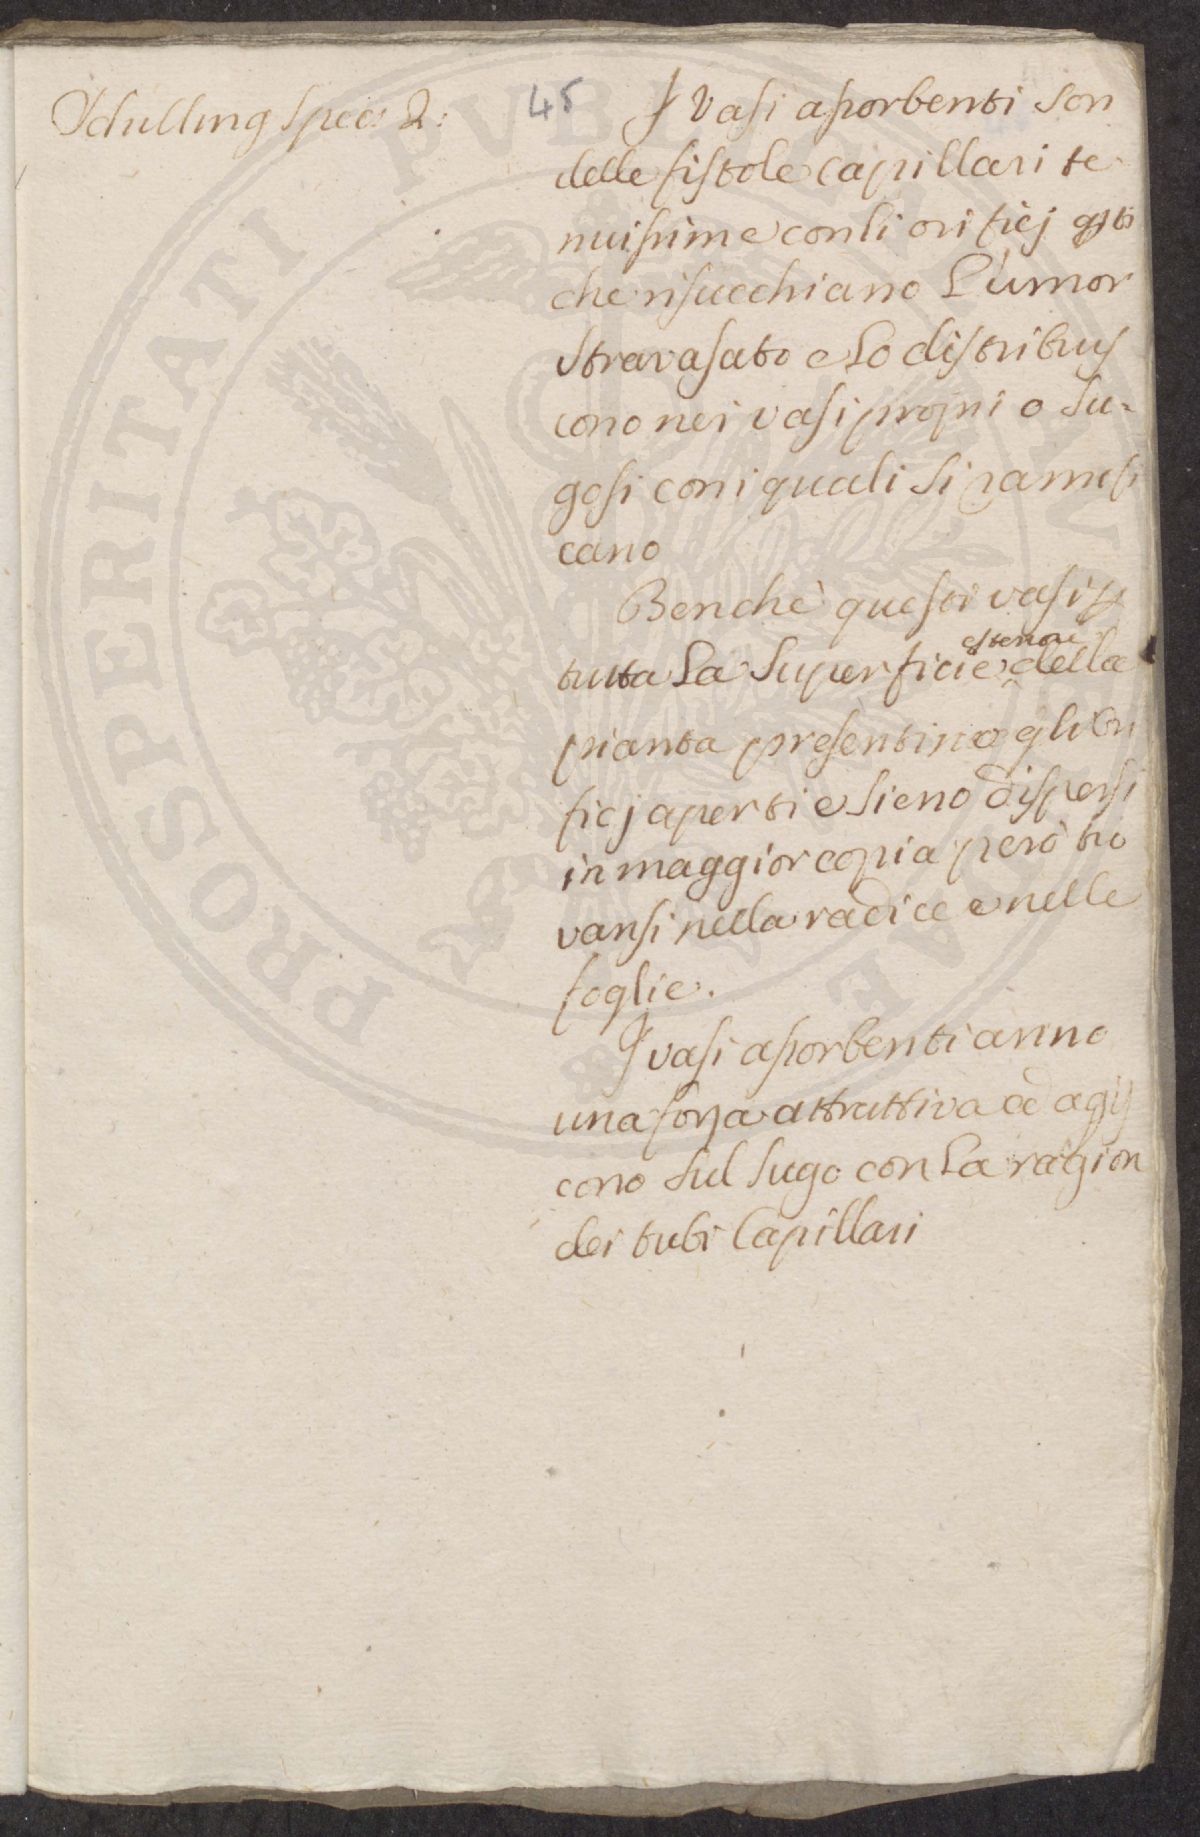 Schulling Spec: 2:
45
I Vasi assorbenti son
delle fistole capillari te
nuissime con li orificj
che risucchiano L'umor
stravasato e Lo distribuis
cono nei vasi proprii o su=
gosi con i quali si ramifi
cano
Benchè questi vasi p
esteriore
tutta La Superficie della
pianta presentino gli ori
ficj aperti e sieno dispersi
in maggior copia però tro
vansi nella radice e nelle
foglie.
I vasi assorbenti anno
una forza attrattiva ed agis
cono sul sugo con La ragion
dei tubi Capillari
PROSPERITATI PVBLICAE